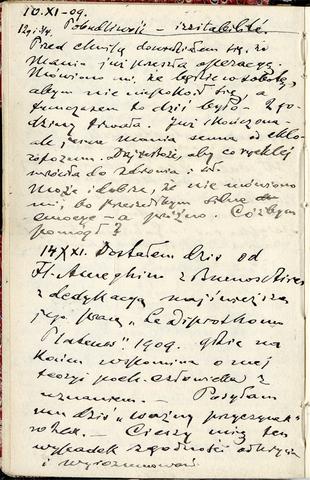 10.XI-09.
Pobudliwość – irritabilité.
Przed chwilą dowiedziałem się, że
Mania już przeszła operację.
Mówiono mi, że będzie w sobotę,
abym nie niepokoił się, a
tymczasem to dziś było – 2 go-
dziny trwała. Już skończona –
ale jeszcze Mania senna od chlo-
roformu. Daj Boże, aby co rychlej
wróciła do zdrowia i sił.
Może i dobrze, że nie mówiono
mi, bo przeżyłbym silne
emocye – a próżno. Cóż bym
pomógł?
14/XI. Dostałem dziś od
Fl. Ameghina z Buenos Aires
z dedykacyą najświeższą
jego pracę „Le Diprothomo
Platensis". 1909. gdzie na
końcu wspomina o mej
teoryi poch. człowieka z
uznaniem. – Posyłam
mu dziś „ważny przyczynek"
– Cieszy mię ten
wypadek zgodności odkrycia
i wyrozumowań.